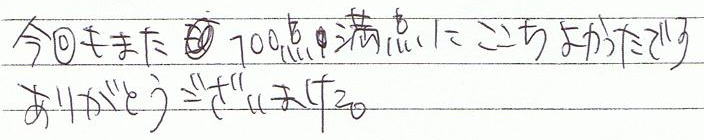 今回もまた100点満点にここちよかったです
ありがとうございました。